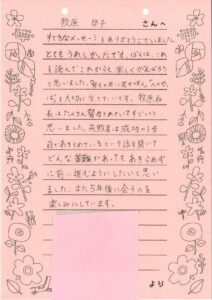 牧原 啓子 さんへ
すてきなメッセージをありがとうございました。
とてもうれしかったです。ぼくは、これ
を読んで これからも楽しくがんばろう
と思いました。
ぼ」を大切に生きていきます。牧原社
長はたくさん努力されていてすごいと
思いました。失敗は成功の1歩
前であきらめているという話を聞いて
どんな苦難があってもあきらめず
に前に進むようにしたいと思い
ました。また5年後に会うのを
楽しみにしています。
より